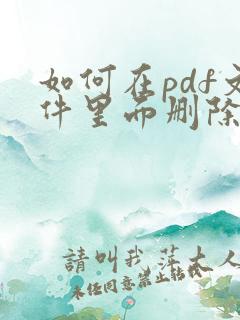 如何在pdf文
件里面删除
請叫我萍大人
未经同意禁止转载